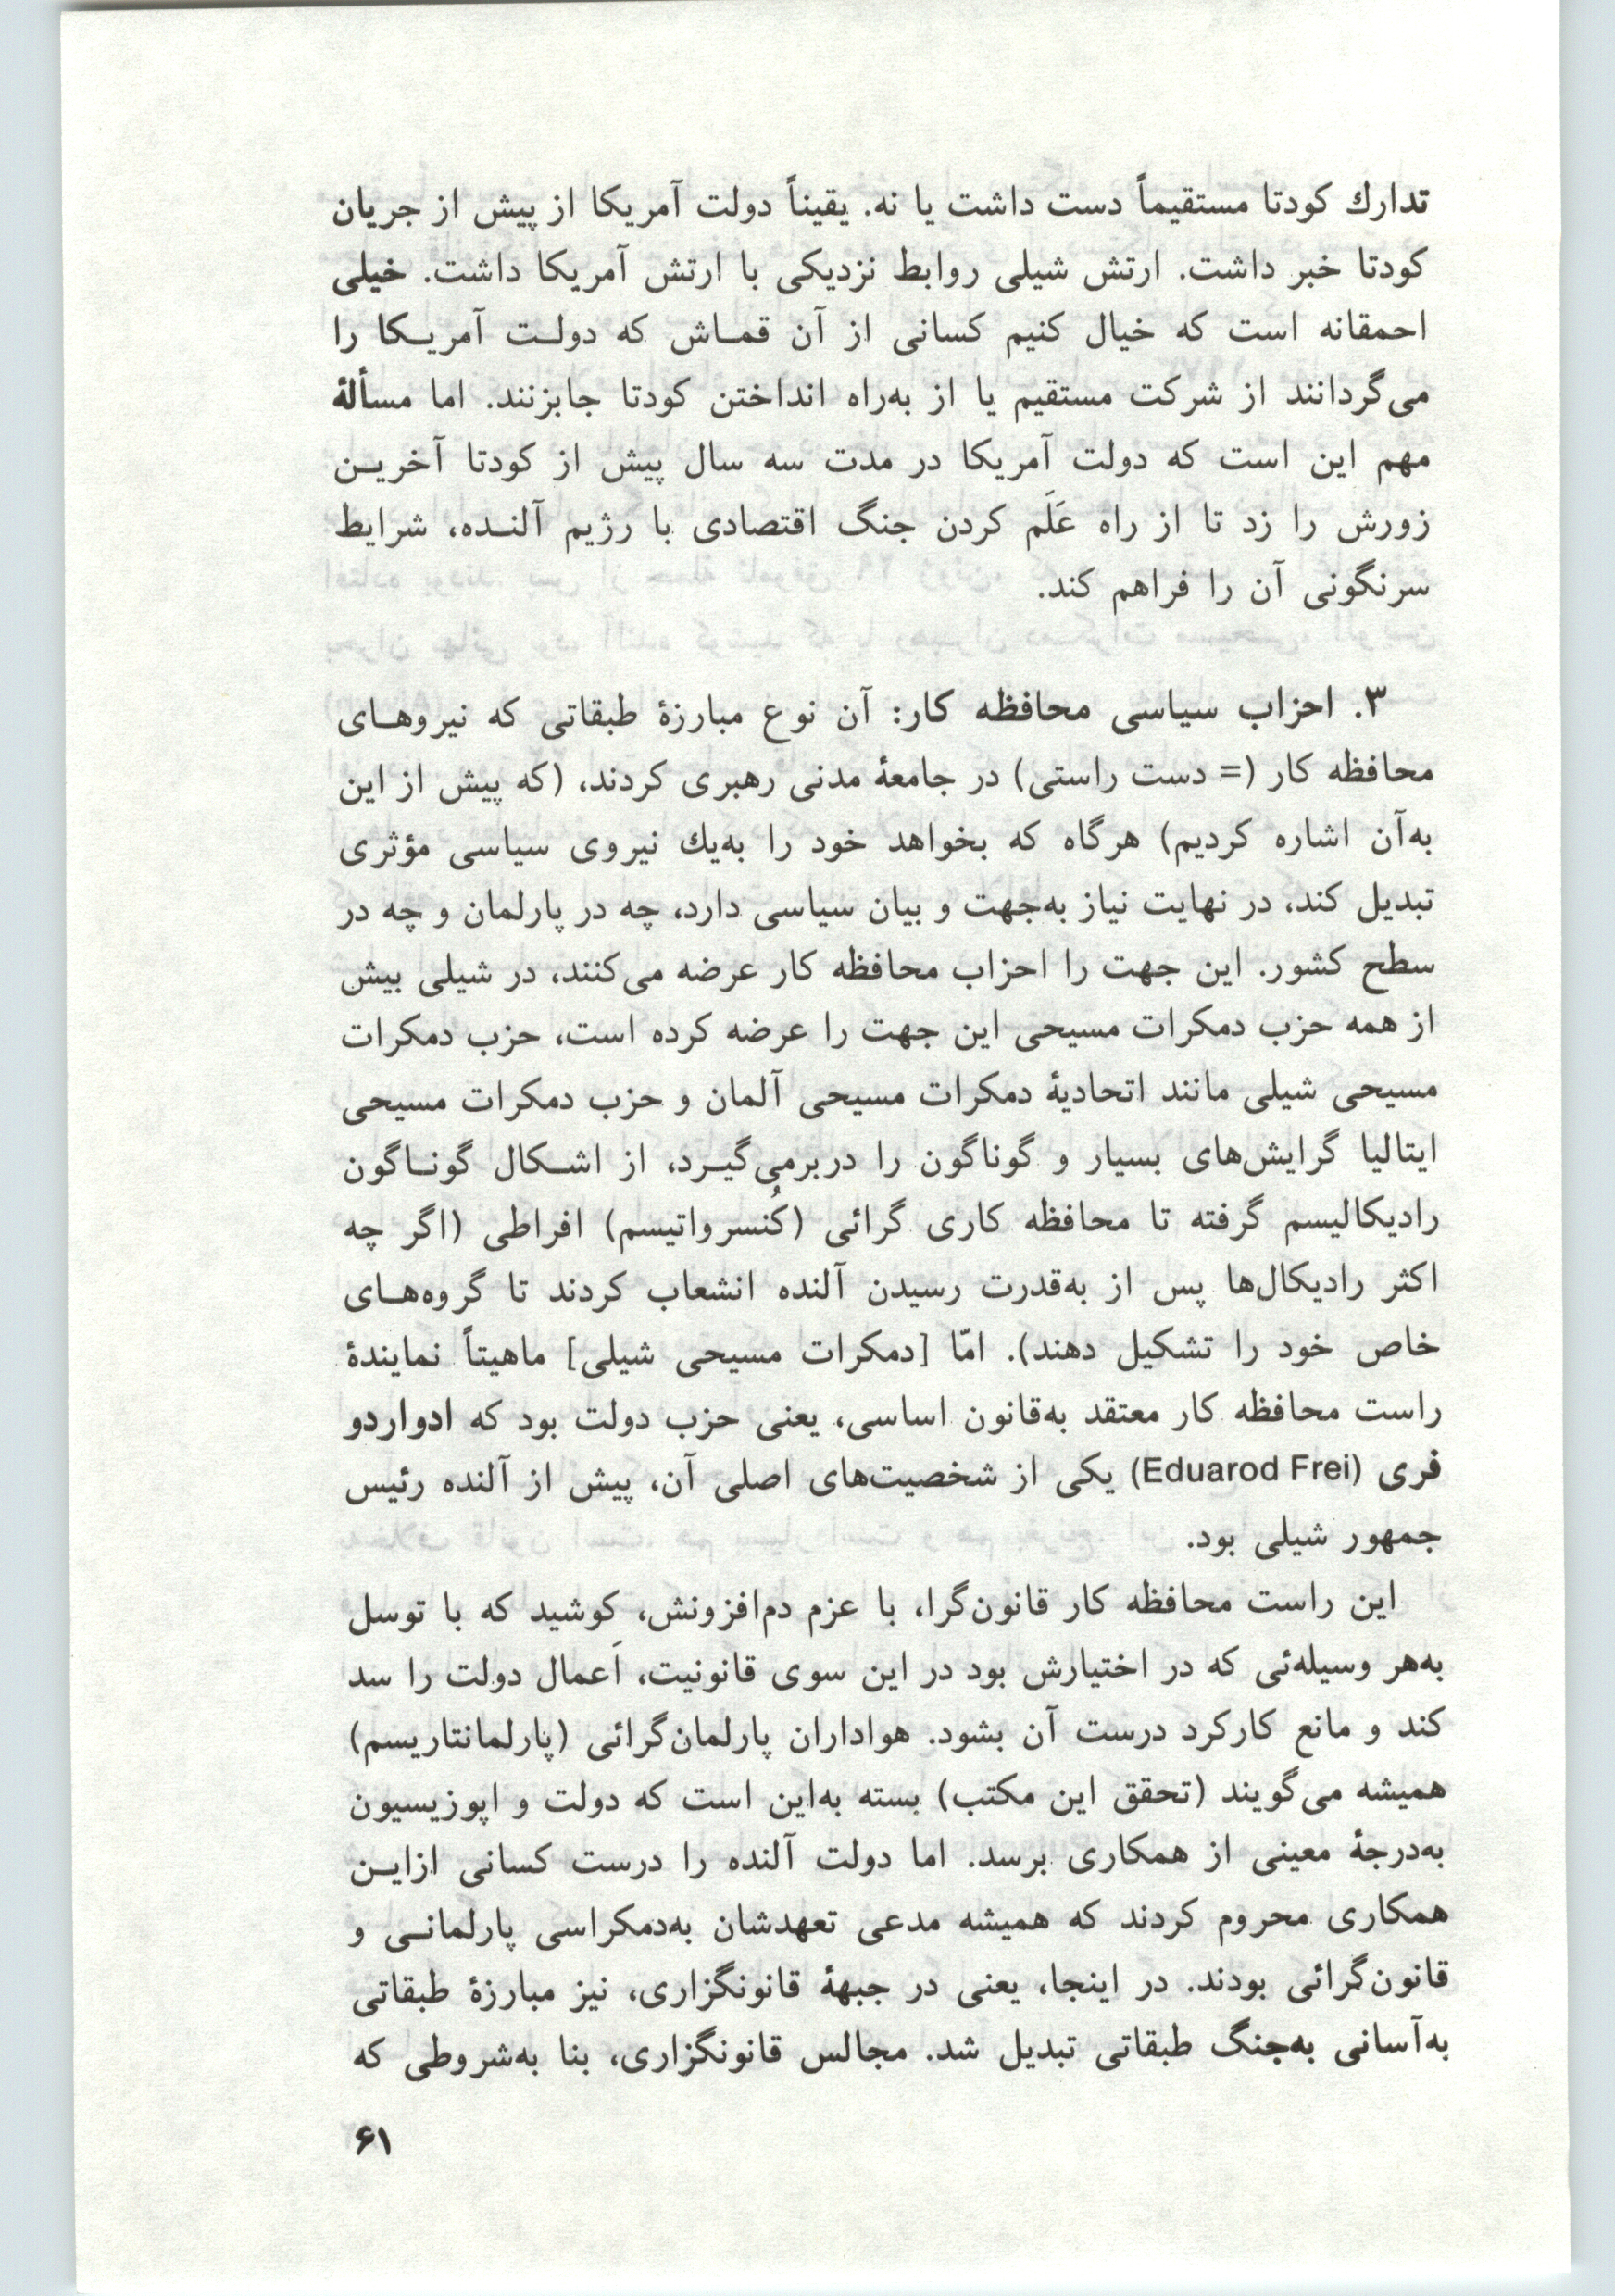 تدارك کودتا مستقیماً دست داشت یا نه. یقیناً دولت آمریکا از پیش از جریان
کودتا خبر داشت. ارتش شیلی روابط نزدیکی با ارتش آمریکا داشت. خیلی
احمقانه است که خیال کنیم کسانی از آن قمـاش که دولـت آمریـکا را
می‌گردانند از شرکت مستقیم یا از به‌راه انداختن کودتا جابزنند. اما مسألهٔ
مهم این است که دولت آمریکا در مدت سه سال پیش از کودتا آخریـن
زورش را زد تا از راه عَلَم کردن جنگ اقتصادی با رژیم آلنـده، شرایط
سرنگونی آن را فراهم کند.
۳. احزاب سیاسی محافظه کار: آن نوع مبارزهٔ طبقاتی که نیروهـای
محافظه کار (= دست راستی) در جامعهٔ مدنی رهبری کردند، (که پیش از این
به‌آن اشاره کردیم) هرگاه که بخواهد خود را به‌یك نیروی سیاسی مؤثری
تبدیل کند، در نهایت نیاز به‌جهت و بیان سیاسی دارد، چه در پارلمان و چه در
سطح کشور. این جهت را احزاب محافظه کار عرضه می‌کنند، در شیلی بیش
از همه حزب دمکرات مسیحی این جهت را عرضه کرده است، حزب دمکرات
مسیحی شیلی مانند اتحادیهٔ دمکرات مسیحی آلمان و حزب دمکرات مسیحی
ایتالیا گرایش‌های بسیار و گوناگون را دربرمی‌گیـرد، از اشـکال گونـاگون
رادیکالیسم گرفته تا محافظه کاری گرائی (کُنسرواتیسم) افراطی (اگر چه
اکثر رادیکال‌ها پس از به‌قدرت رسیدن آلنده انشعاب کردند تا گروه‌هـای
خاص خود را تشکیل دهند). امّا [دمکرات مسیحی شیلی] ماهیتاً نمایندهٔ
راست محافظه کار معتقد به‌قانون اساسی، یعنی حزب دولت بود که ادواردو
فری (Eduarod Frei) یکی از شخصیت‌های اصلی آن، پیش از آلنده رئیس
جمهور شیلی بود.
این راست محافظه کار قانون‌گرا، با عزم دم‌افزونش، کوشید که با توسل
به‌هر وسیله‌ئی که در اختیارش بود در این سوی قانونیت، اَعمال دولت را سد
کند و مانع کارکرد درست آن بشود. هواداران پارلمان‌گرائی (پارلمانتاریسم)
همیشه می‌گویند (تحقق این مکتب) بسته به‌این است که دولت و اپوزیسیون
به‌درجهٔ معینی از همکاری برسد. اما دولت آلنده را درست کسانی ازایـن
همکاری محروم کردند که همیشه مدعی تعهدشان به‌دمکراسی پارلمانـی و
قانون‌گرائی بودند. در اینجا، یعنی در جبههٔ قانونگزاری، نیز مبارزهٔ طبقاتی
به‌آسانی به‌جنگ طبقاتی تبدیل شد. مجالس قانونگزاری، بنا به‌شروطی که
۶۱